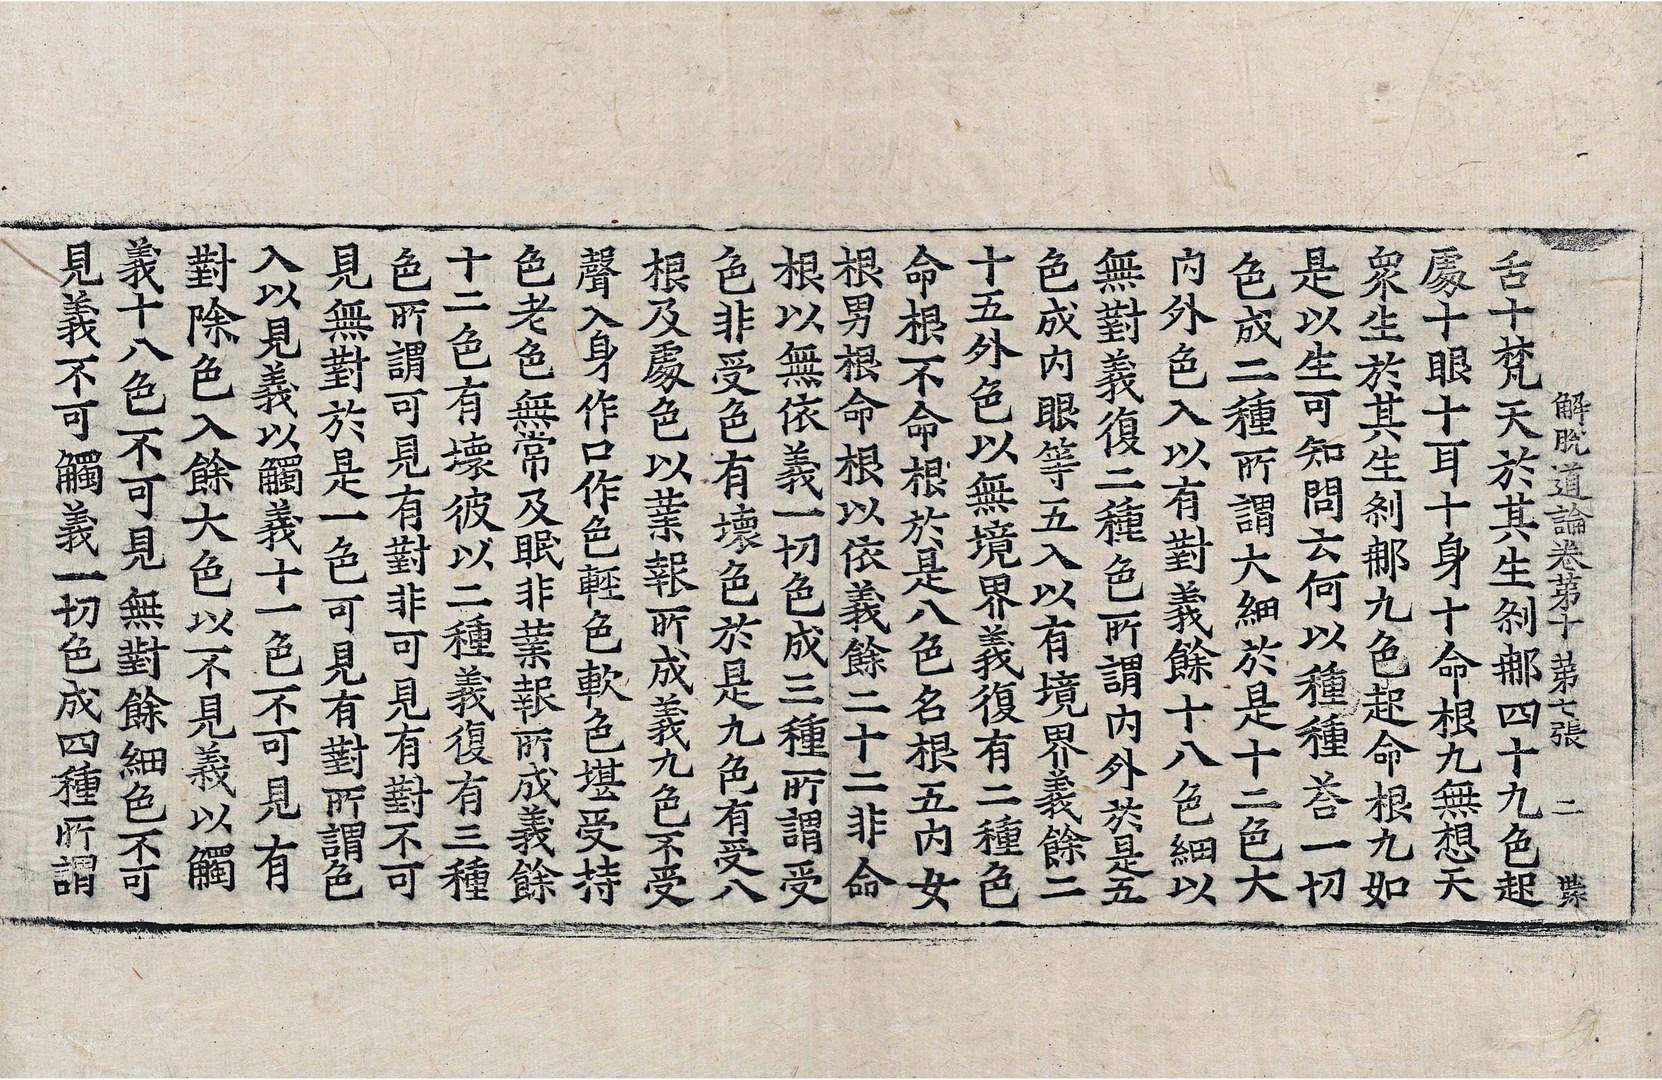 解脫道論卷第十 第七張 二 㡤
舌十梵天於其生剎那四十九色起
處十眼十耳十身十命根九無想天
衆生於其生剎那九色起命根九如
是以生可知問云何以種種荅一切
色成二種所謂大細於是十二色大
內外色入以有對義餘十八色細以
無對義復二種色所謂內外於是五
色成內眼等五入以有境界義餘二
十五外色以無境界義復有二種色
命根不命根於是八色名根五內女
根男根命根以依義餘二十二非命
根以無依義一切色成三種所謂受
色非受色有壞色於是九色有受八
根及處色以業報所成義九色不受
聲入身作口作色輕色軟色堪受持
色老色無常及眠非業報所成義餘
十二色有壞彼以二種義復有三種
色所謂可見有對非可見有對不可
見無對於是一色可見有對所謂色
入以見義以觸義十一色不可見有
對除色入餘大色以不見義以觸
義十八色不可見無對餘細色不可
見義不可觸義一切色成四種所謂